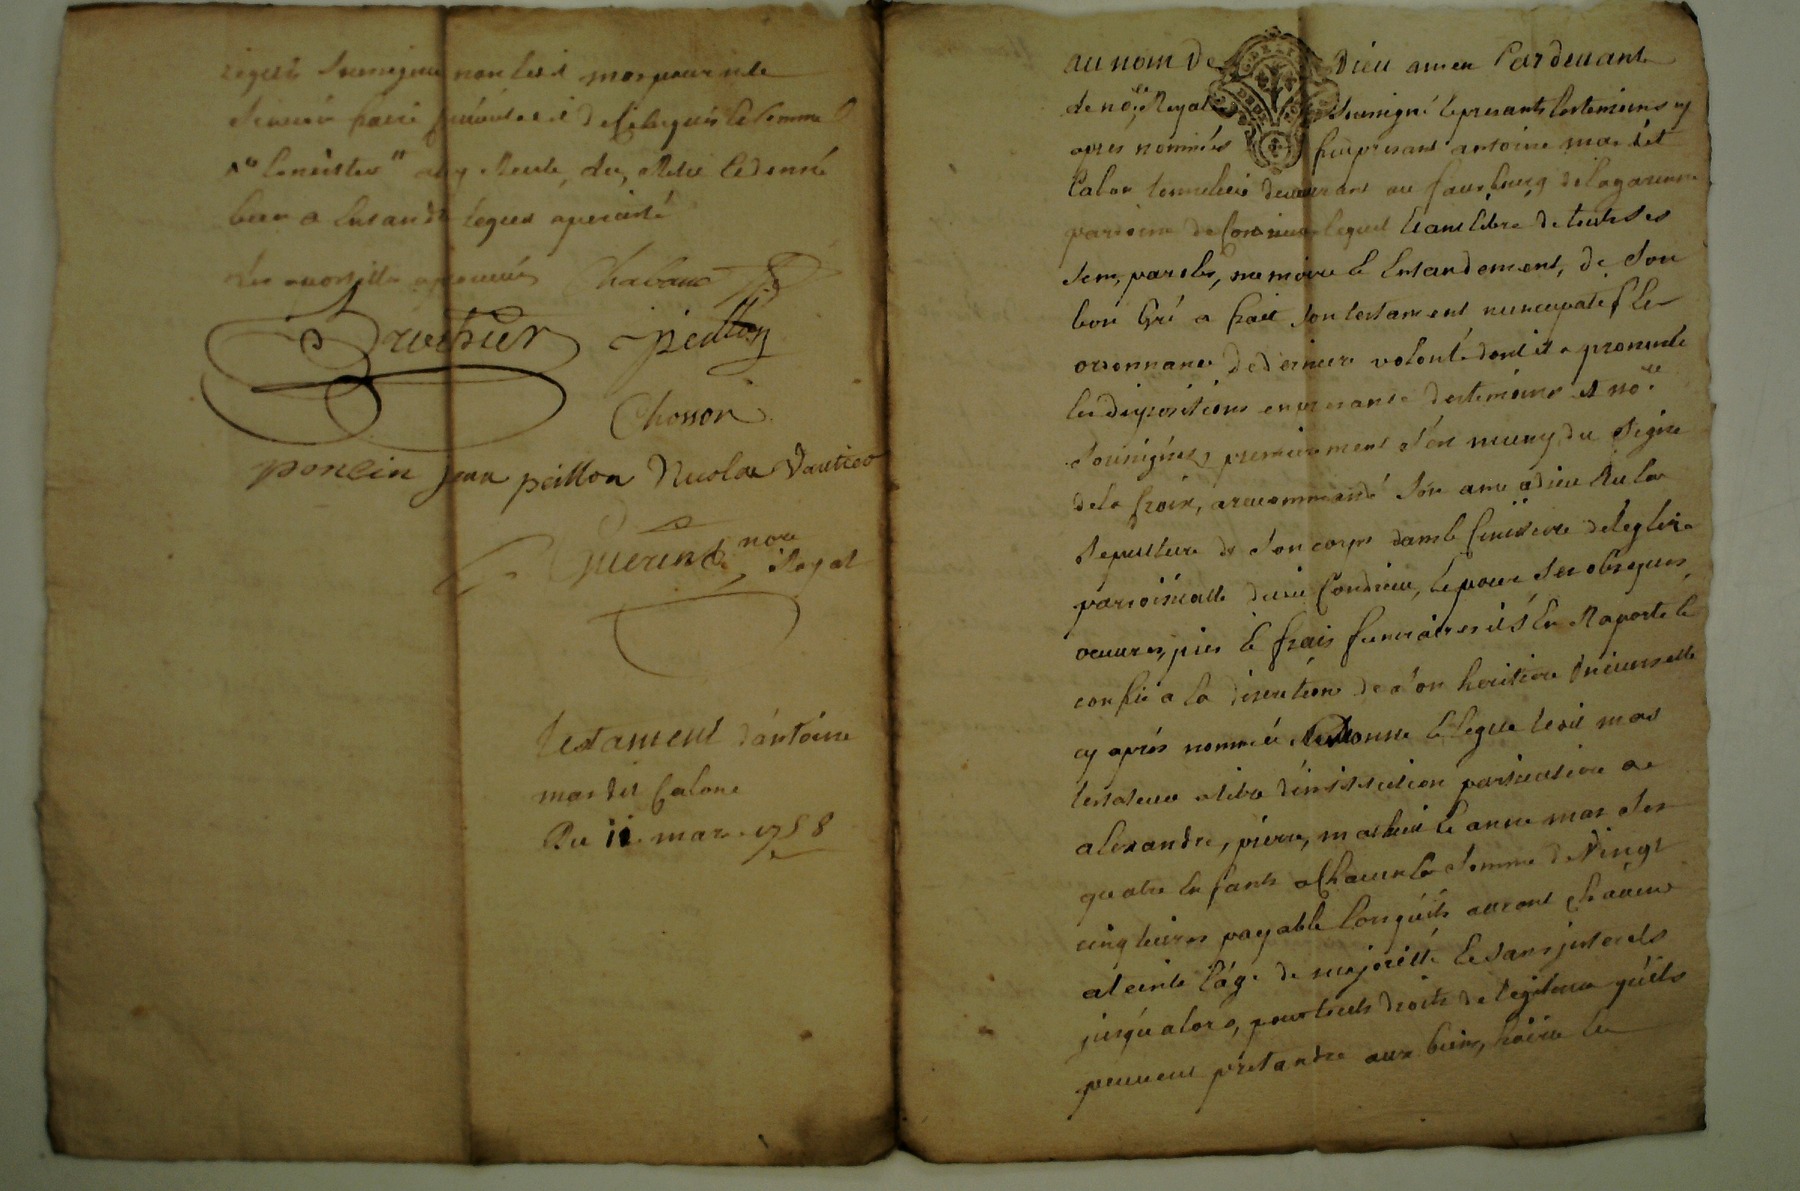 requis Soussigné non ledit mas pour ne le
Scavoir faire
bien a
Chabane
Brothier Peillon
Chosson
poncin jean peillon Nicolas Vautier
Guerin no.re Royal
testament d'antoine
mas dit Calone
Du 11 mars 1758
au nom De Dieu amen Pardevant
le no.re Royal Soussigné le presants les temoins cy
apres nommés fut presant antoine mas dit
Calon tonnelier demeurant au fauxbourg de la garenne
paroisse de Condrieu lequel Etant libre de touts ses
sens, parolle, memoire Et Entandement, de Son
bon Gré a fait Son testament nuncupatif Et
ordonnance de derniere volonté dont il a prononcé
les dispositions en presance des temoins et no.re
Soussignés, premierement s'est muny du Signe
de la Croix, a recommandé Son ame a dieu Elu la
Sepulture de Son corps dans le Cimitiere de l'eglise
paroissialle dudit Condrieu, Et pour Ses obseques,
oeuvres pies Et frais funeraires il S'En Raporte Et
confie a la discretion de Son heritiere Universelle
cy après nommée donne Et legue ledit mas
testateur a titre d'institution particuliere a
alexandre, pierre, mathieu Et anne mas Ses
quatre Enfants a Chacun la Somme de Vingt
cinq livres payable lorsqu'ils auront Chacun
ateint l'âge de majorité Et sans interets
jusqu'alors, pour touts droits de legitime qu'ils
peuvent pretandre aux biens, hoirie Et